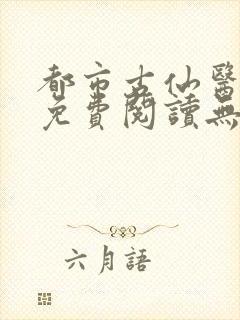 都市古仙醫
免費閱讀無
六月語